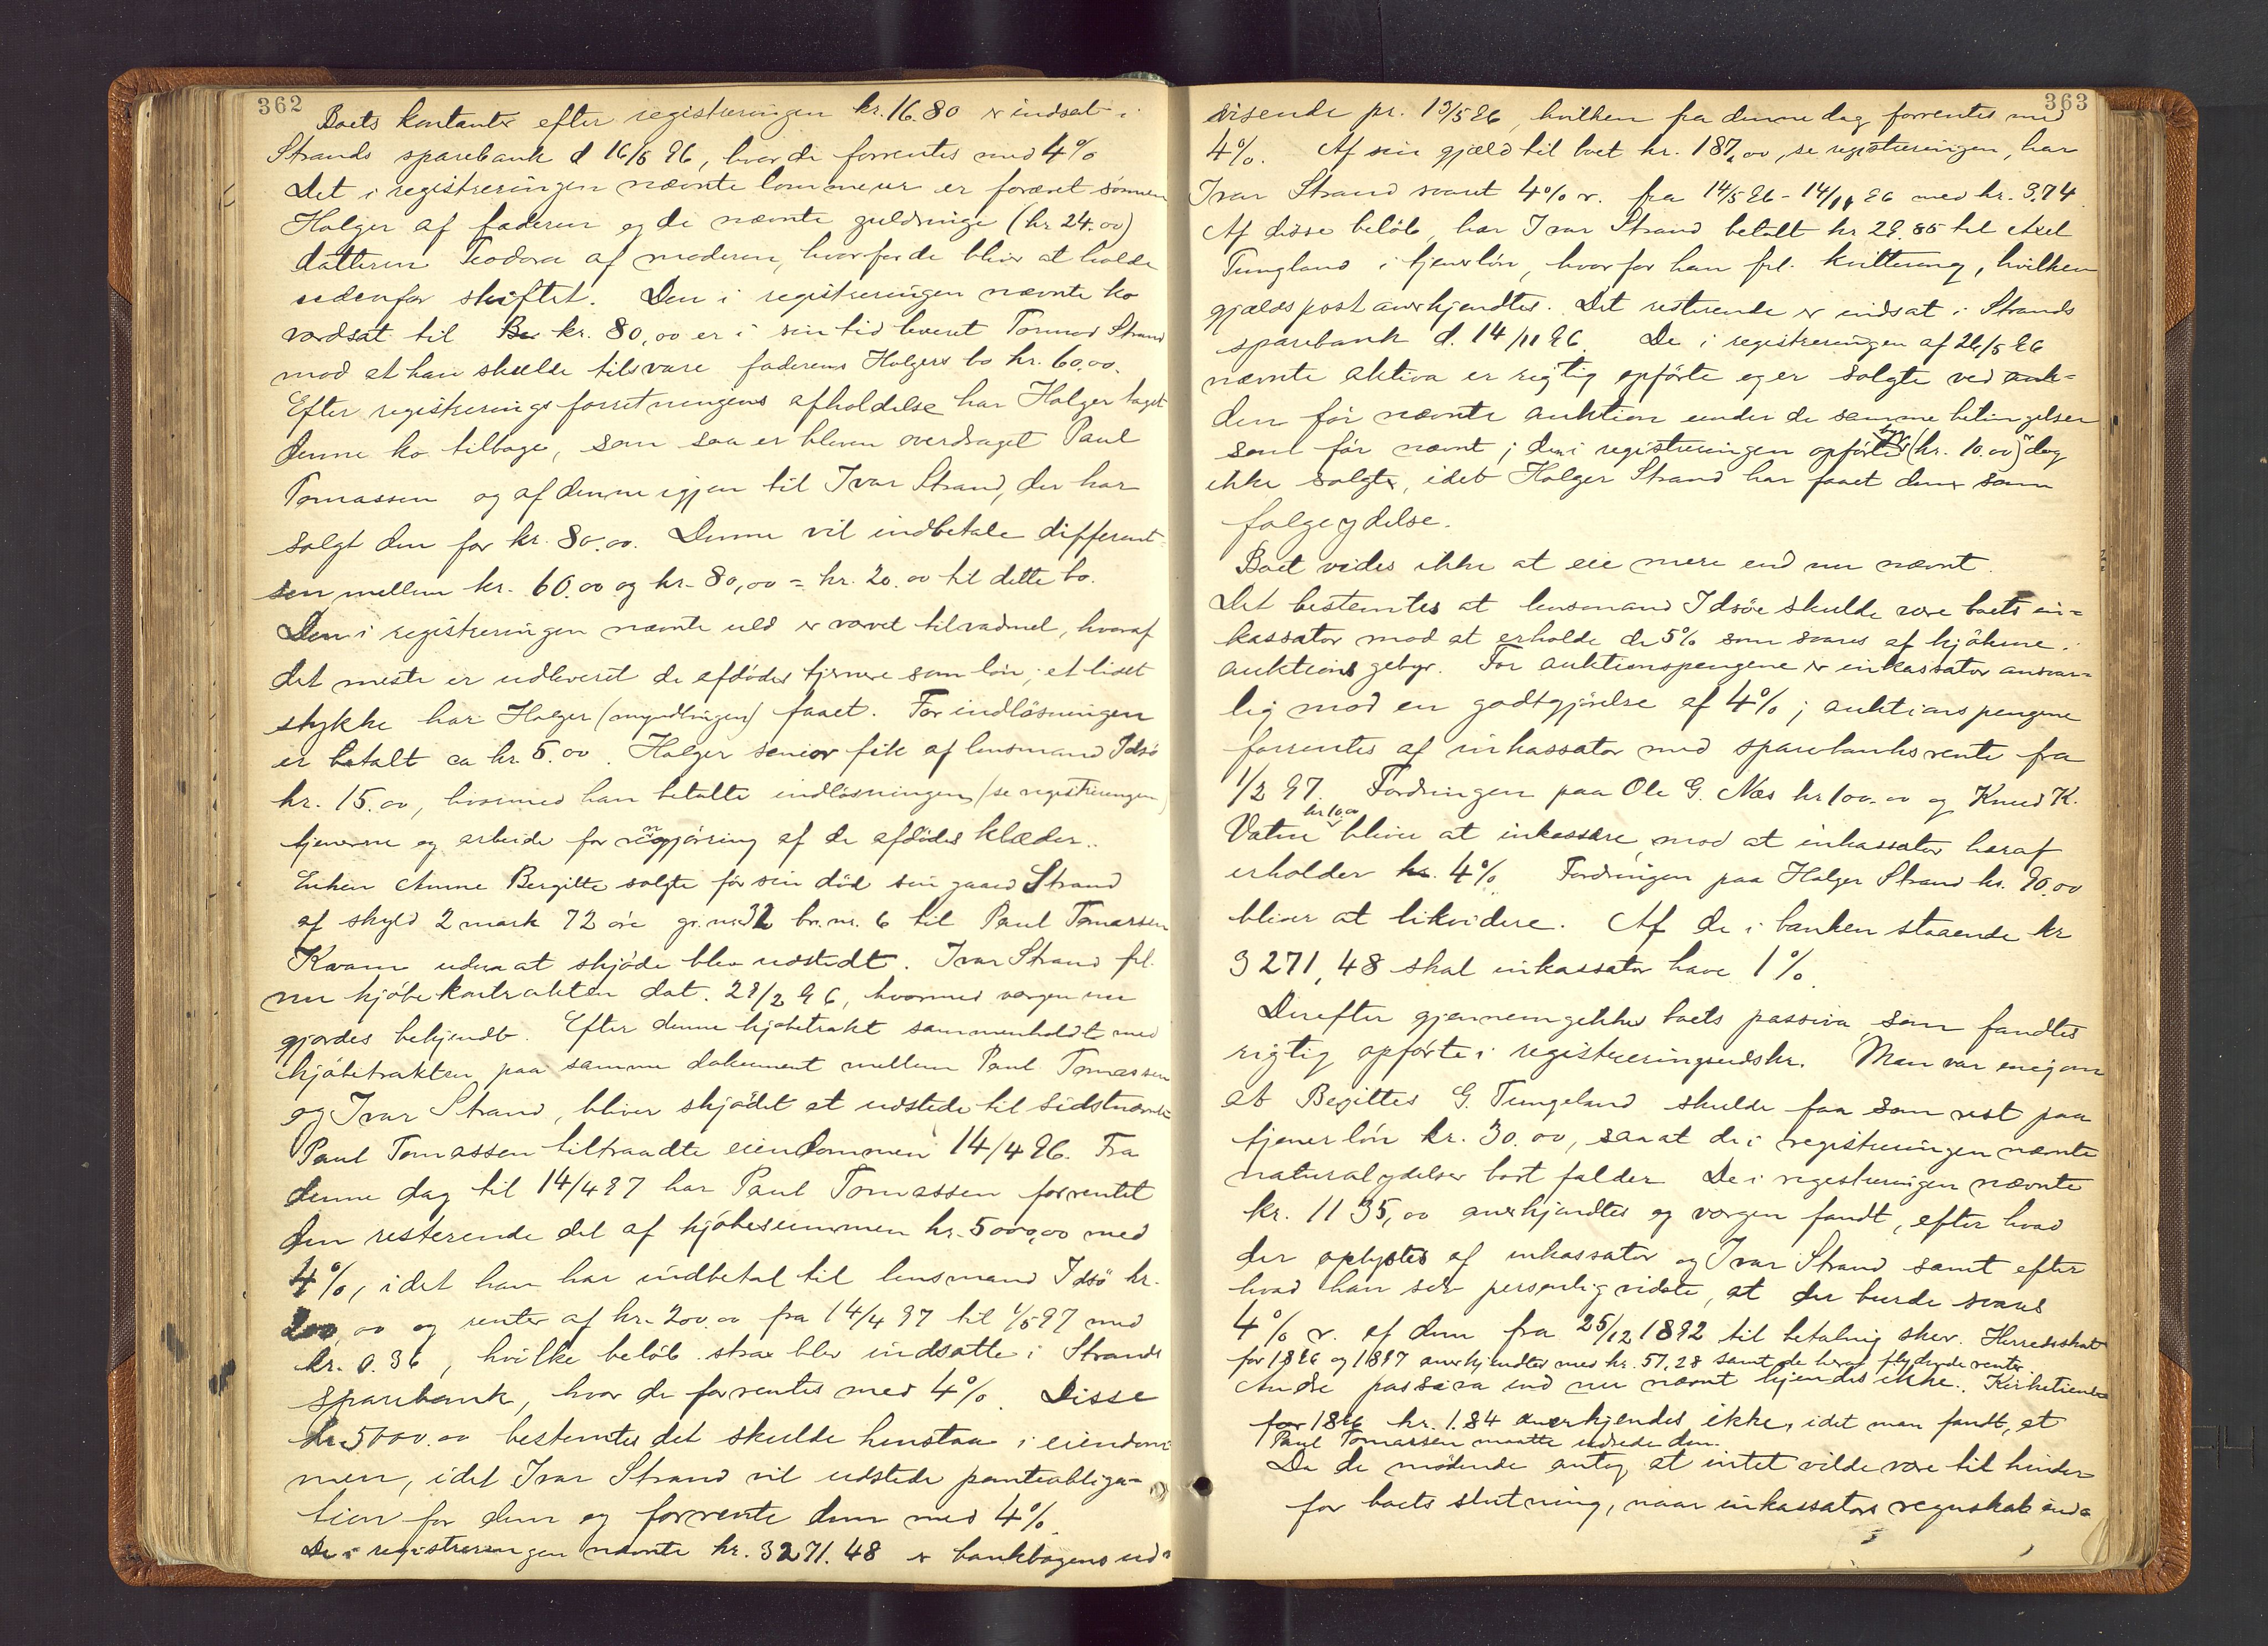 362
Boets kontanter efter registreringen kr. 16.80 er indsat i
Strands sparebank d 16/5 96, hvor de forrentes med 4%
Det i registreringen nævnte lommeur er foræret sønnen
Holger af faderen og de nævnte guldringe (kr 24.00)
datteren Teodora af moderen, hvorfor de bliver at holde
udenfor skiftet. Den i registreringen nævnte ko
vardsat til kr. 80,00 er i sin tid leveret Tormod Strand
mod at han skulde tilsvare faderens Holgers bo kr. 60,00.
Efter registreringsforretningens afholdelse har Holger taget
denne ko tilbage, som saa er bleven overdraget Paul
Tomassen og af denne igjen til Ivar Strand, der har
solgt den for kr. 80.00. Denne vil indbetale different-
sen mellem kr. 60.00 og kr. 80,00 = kr. 20.00 til dette bo.
Den i registreringen nævnte uld er vævet til vadmel, hvoraf
det meste er udleveret de afdødes tjenere som løn; et lidet
stykke har Holger (myndlingen) faaet. For indløsningen
er betalt ca kr. 5.00. Holger senior fik af lensmand Idsø
kr. 15.00, hvormed han betalte indløsningen (se registreringen)
tjenerne og arbeide for rengjøring af de afdødes klæder..
Enken Anne Bergitte solgte før sin død sin gaard Strand
af skyld 2 mark 72 øre gr. nr 32 br. nr. 6 til Paul Tomassen
Kvam uden at skjøde blev udstedt. Ivar Strand frl.
nu kjøbekontrakten dat. 29/2 96, hvormed vergen nu
gjordes bekjendt. Efter denne kjøbetrakt sammenholdt med
kjøbetrakten paa samme dokument mellem Paul Tomassen
og Ivar Strand, bliver skjødet at udstede til sidstnævnte
Paul Tomassen tiltraadte eiendommen 14/4 96. Fra
denne dag til 14/4 97 har Paul Tomassen forrentet
den resterende del af kjøbesummen kr. 5000,00 med
4%, idet han har indbetal til lensmand Idsø kr.
200,00 og renter af kr. 200.00 fra 14/4 97 til 1/5 97 med
kr. 0.36, hvilke beløb strax blev indsatte i Strands
sparebank, hvor de forrentes med 4%. Disse
kr. 5000.00 bestemtes det skulde henstaa i eiendom
men, idet Ivar Strand vil udstede panteobliga-
tion for dem og forrente dem med 4%.
De i registreringen nævnte kr. 3271.48 er bankbogens ud-
363
visende pr. 13/5 96, hvilken fra denne dag forrentes med
4%. Af sin gjæld til boet kr. 187,00, se registreringen, har
Ivar Strand svaret 4% r. fra 14/5 96 - 14/11 96 med kr. 3.74.
Af disse beløb, har Ivar Strand betalt kr 29.85 til Axel
Tungland i tjenerløn, hvorfor han frl. kvittering, hvilken
gjældspost anerkjendtes. Det resterende er indsat i Strands
sparebank d. 14/11 96. De i registreringen af 26/5 96
nævnte aktiva er rigtig opførte og er solgte ved auk-
den før nævnte auktion under de samme betingelser
som før nævnt; den i registreringen opførte (kr. 10.00) er dog
ikke solgt, idet Holger Strand har faaet den som
følgeydelse.
Boet vides ikke at eie mere end nu nævnt.
Det bestemtes at lensmand Idsøe skulde være boets in-
kassator mod at erholde de 5% som svares af kjøberne i
auktionsgebyr. For auktionspengene er inkassator ansvar-
lig mod en godtgjørelse af 4%; auktionspengene
forrentes af inkassator med sparebanksrente fra
1/2 97. Fordringen paa Ole G. Næs kr 100.00 og Knud K.
Vatne kr 10,00 bliver at inkassere, mod at inkassator heraf
erholder 4%. Fordringen paa Holger Strand kr. 90.00
bliver at likvidere. Af de i banken staaende kr
3271,48 skal inkassator have 1%.
Derefter gjennemgikkes boets passiva som fandtes
rigtig opførte i registreringsudskr. Man var enig om
at Begittes G. Tungeland skulde faa som rest paa
tjenerløn kr. 30.00, saa at de i registreringen nævnte
naturalydelser bortfalder. De i registreringen nævnte
kr. 1135,00 anerkjendtes og vergen fandt, efter hvad
der oplystes af inkassator og Ivar Strand samt efter
hvad han selv personlig vidste, at der burde svares
4% r. af dem fra 25/12 1892 til betaling sker. Herredsskat
for 1896 og 1897 anerkjendtes med kr. 57,28 samt de heraf flydende renter.
Andre passiva end nu nævnt kjendes ikke. Kirketiende
for 1896 kr. 1.84 anerkjendes ikke, idet man fandt, at
Paul Tomassen maatte udrede den.
Da de mødende antog at intet vilde være til hinder
for boets slutning, naar inkassators regnskab ind-